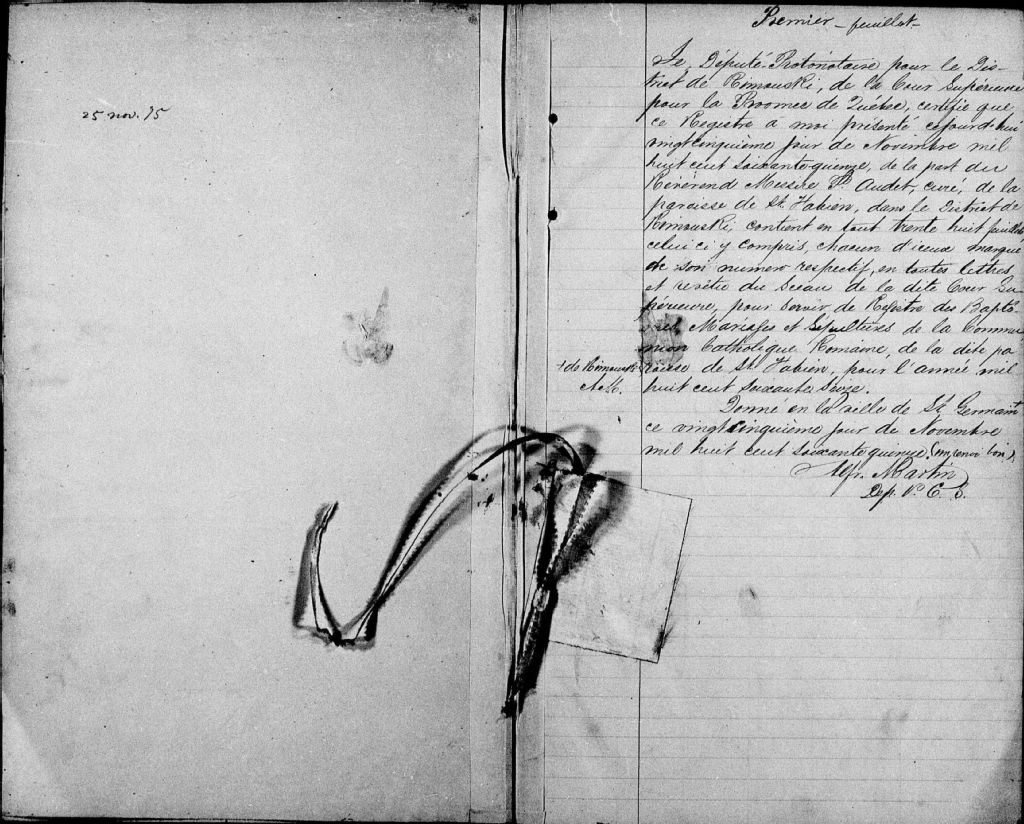 25 nov. 75
Premier - feuillet -
Le Député-Protonotaire pour le Dis-
trict de Rimouski, de la Cour Supérieure
pour la Province de Québec, certifie que
ce Registre à moi présenté cejourd'hui
vingtcinquième jour de Novembre mil
huit cent soixante-quinze, de la part du
Révérend Messire P. Audet, curé, de la
paroisse de St. Fabien, dans le District de
Rimouski, contient en tout trente huit feuillets
celui ci y compris, chacun d'iceux marqué
de son numero respectif, en toutes lettres
et revêtu du Sceau de la dite Cour Su-
périeure, pour servir de Registre des Baptê-
mes Mariages et Sépultures de la Commu
nion Catholique Romaine, de la dite pa
roisse de St. Fabien, pour l'année mil
huit cent soixante Seize.
+ de Rimouski
A.M.
Donné en la ville de St. Germain+
ce vingtcinquième jour de Novembre
mil huit cent soixante quinze. (un renvoi bon).
Alp. Martin
Dép. P. C. S.